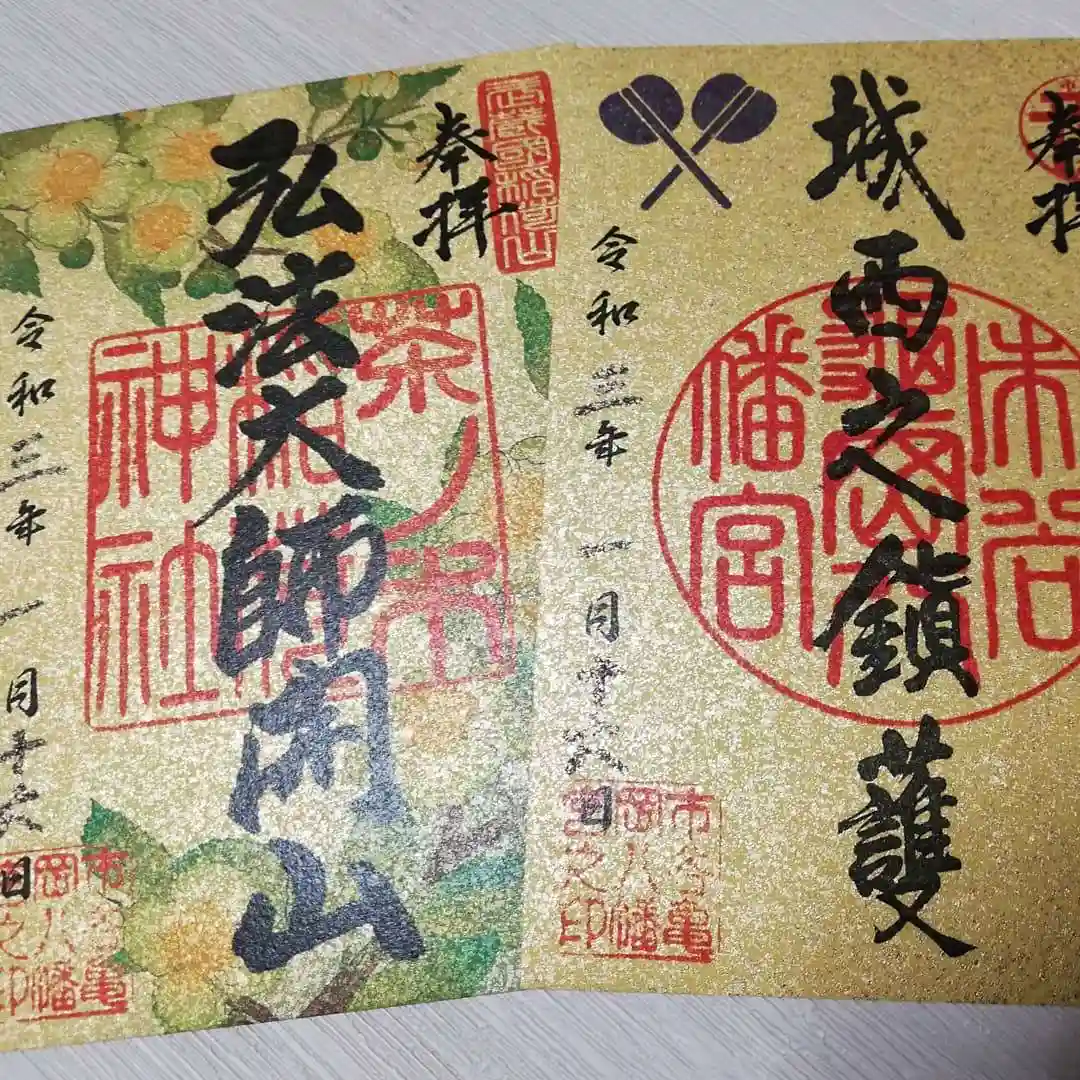 奉拝
城西之鎮護
市谷
亀岡八
幡宮
令和三年一月十六日
市谷亀
岡八幡
宮之印
奉拝
武蔵国稲荷山
弘法大師開山
茶ノ木
稲荷
神社
令和三年一月十六日
市谷亀
岡八幡
宮之印